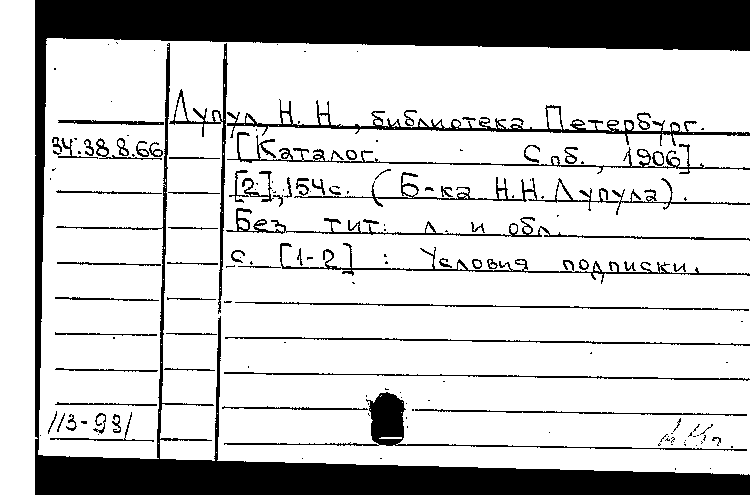 Лупул, Н. Н., библиотека. Петербург.
34.38.8.66 [Каталог. Спб., 1906].
[2], 154с. (Б-ка Н.Н. Лупула).
Без тит. л. и обл.
с. [1-2] : Условия подписки.
113-93/